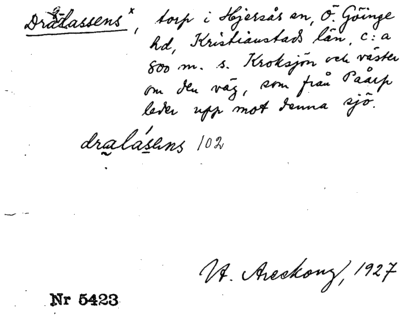 Dralassens x, torp i Hjersås sn, Ö. Göinge
hd, Kristianstads län, c:a
800 m. s. Kroksjön och väster
om den väg, som från Påarp
leder upp mot denna sjö.
dralásens 102
1927
Nr 5423